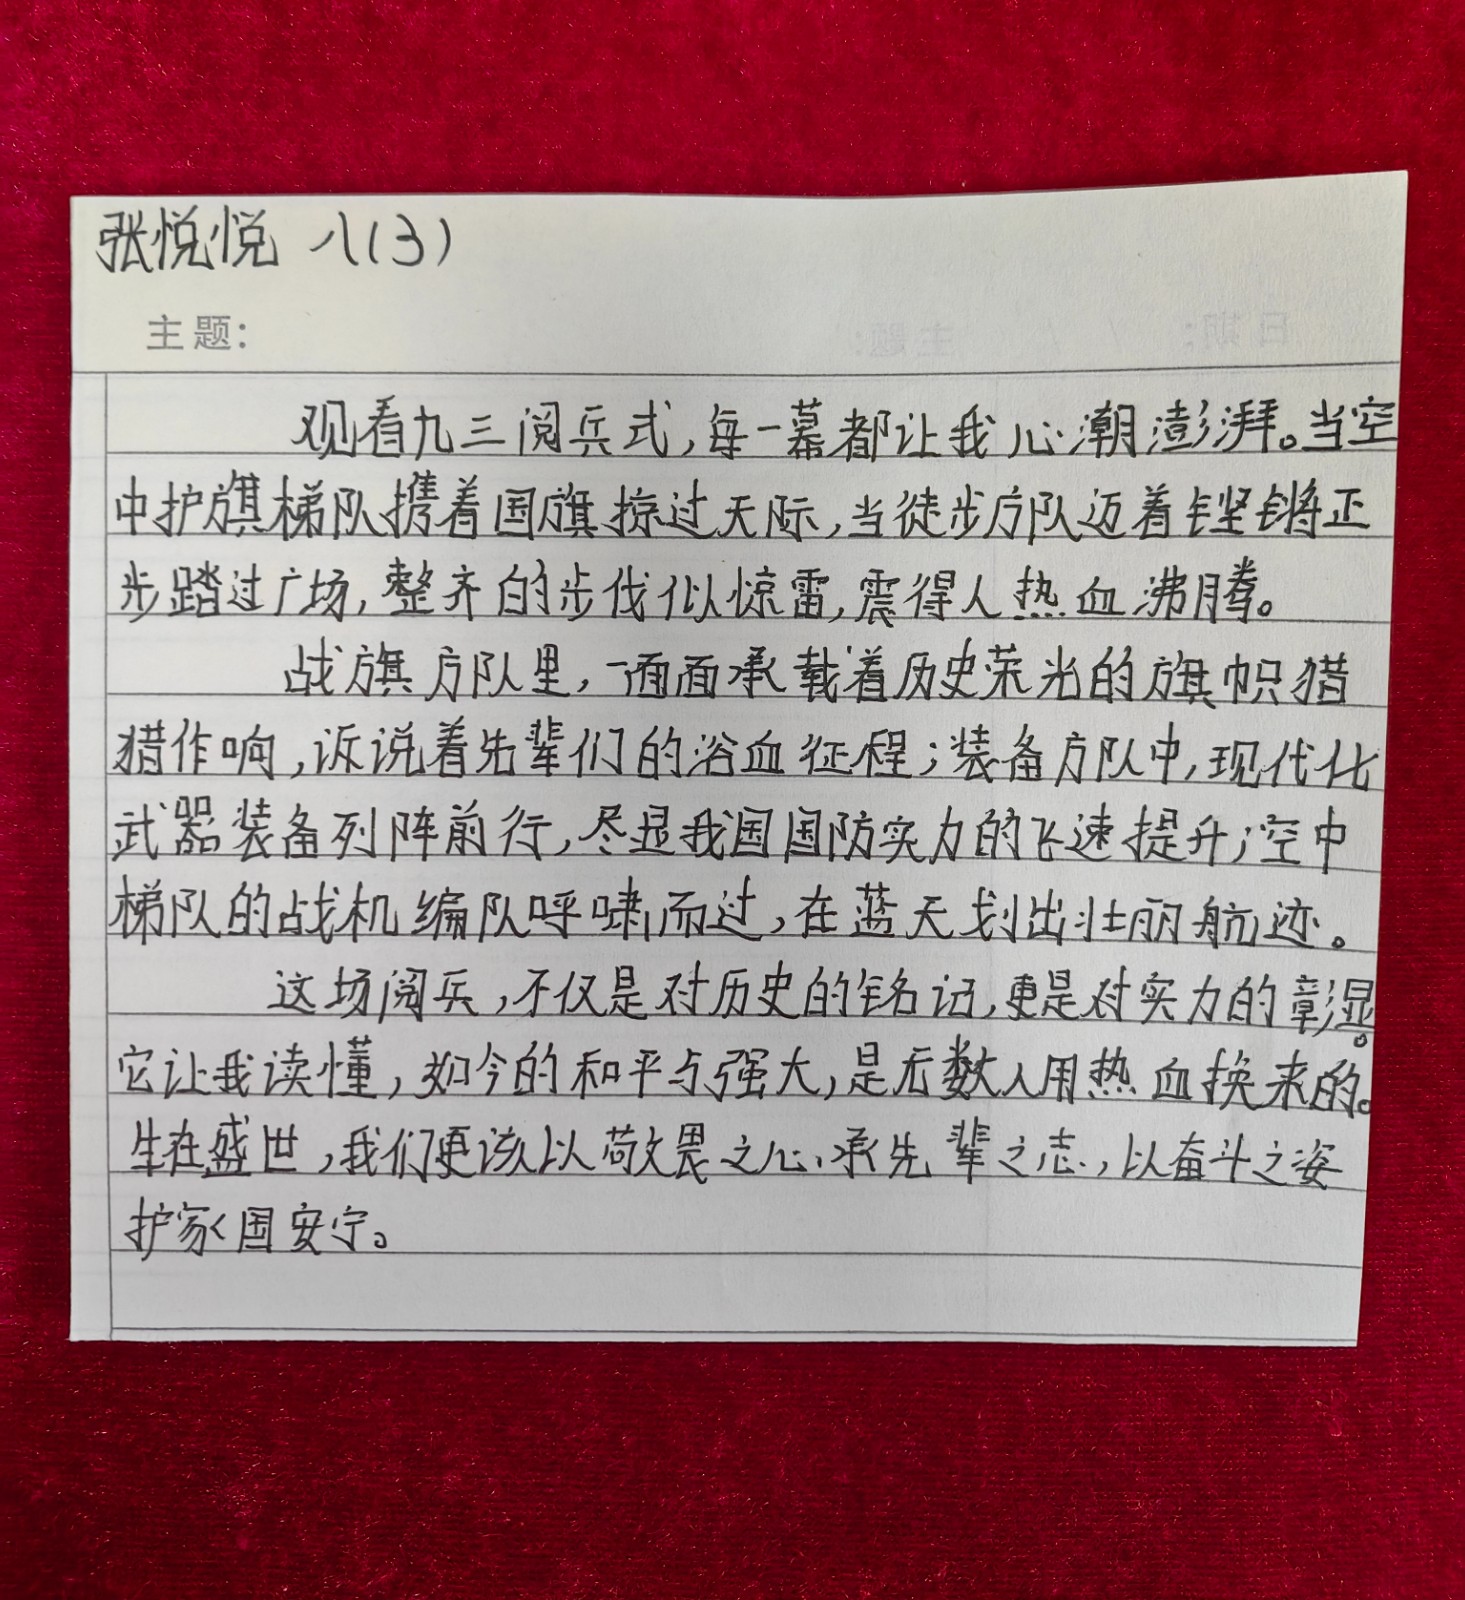 张悦悦 八(3)
主题：
观看九三阅兵式，每一幕都让我心潮澎湃。当空
中护旗梯队携着国旗掠过天际，当徒步方队迈着铿锵正
步踏过广场，整齐的步伐似惊雷，震得人热血沸腾。
战旗方队里，一面面承载着历史荣光的旗帜猎
猎作响，诉说着先辈们的浴血征程；装备方队中，现代化
武器装备列阵前行，尽显我国国防实力的飞速提升；空中
梯队的战机编队呼啸而过，在蓝天划出壮丽航迹。
这场阅兵，不仅是对历史的铭记，更是对实力的彰显。
它让我读懂，如今的和平与强大，是无数人用热血换来的。
生在盛世，我们更该以敬畏之心、承先辈之志，以奋斗之姿
护家国安宁。